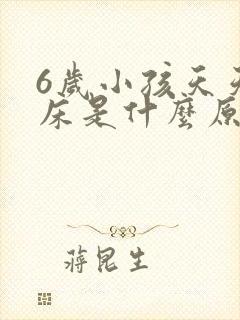 6歲小孩天天
床是什麼原
蔣昆生